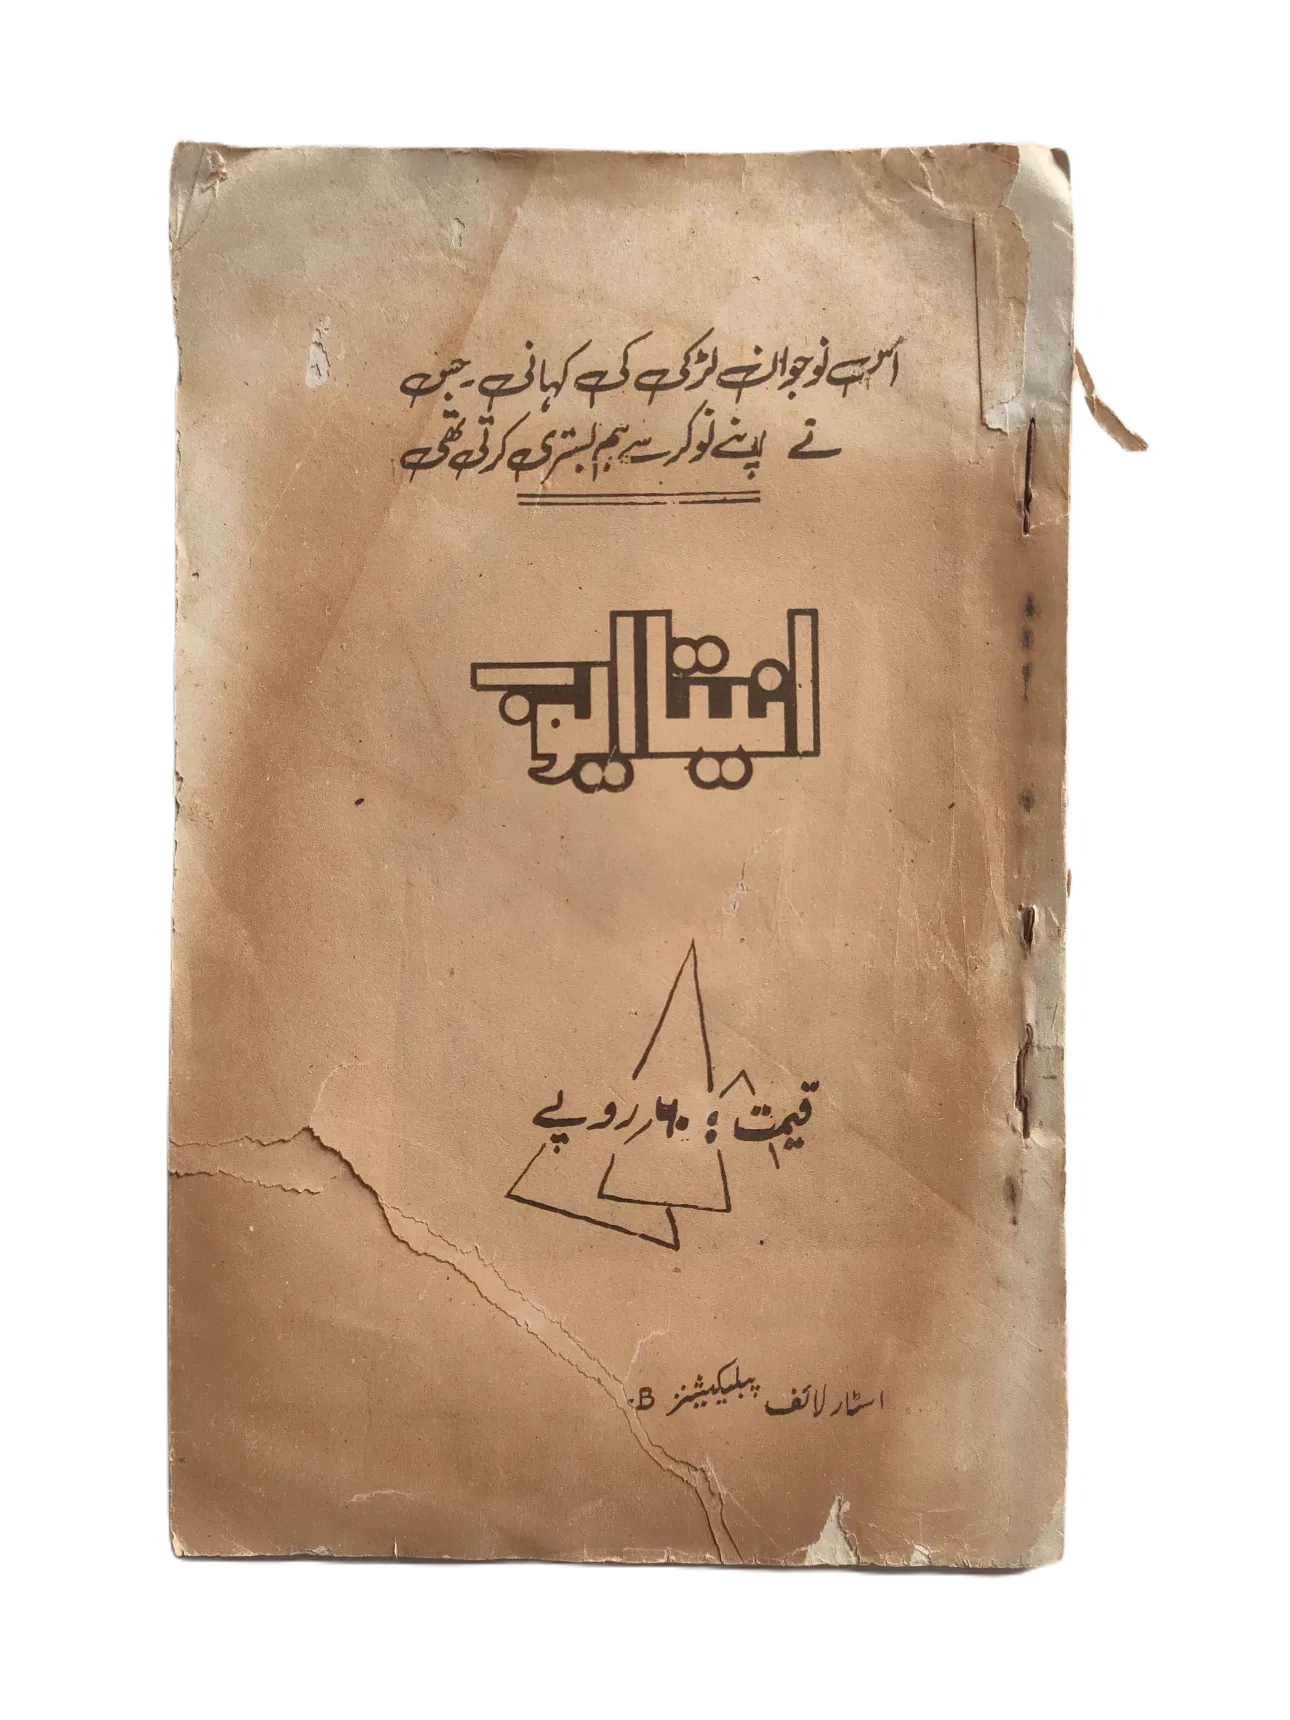 اس نوجوان لڑکی کی کہانی۔ جس
نے اپنے نوکر سے ہم بستری کرتی تھی
قیمت : ۶۰؍ روپے
اسٹار لائف پبلیکیشنز B.